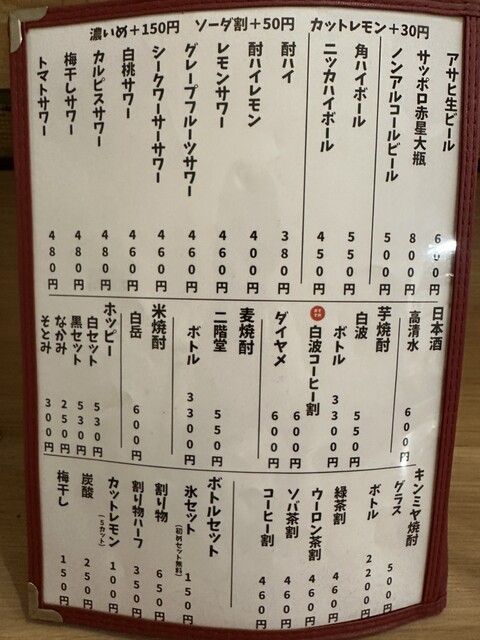 濃いめ+150円 ソーダ割+50円 カットレモン+30円
アサヒ生ビール 600円
サッポロ赤星大瓶 800円
ノンアルコールビール 500円
角ハイボール 550円
ニッカハイボール 450円
酎ハイ 380円
酎ハイレモン 400円
レモンサワー 460円
グレープフルーツサワー 460円
シークワーサーサワー 460円
白桃サワー 460円
カルピスサワー 480円
梅干しサワー 480円
トマトサワー 480円
日本酒
高清水 600円
芋焼酎
白波 550円
ボトル 3300円
白波コーヒー割 600円
ダイヤメ 600円
麦焼酎
二階堂 550円
ボトル 3300円
米焼酎
白岳 600円
ホッピー
白セット 530円
黒セット 530円
なかみ 250円
そとみ 300円
キンミヤ焼酎
グラス 500円
ボトル 2200円
緑茶割 460円
ウーロン茶割 460円
ソバ茶割 460円
コーヒー割 460円
ボトルセット
氷セット(初めセット無料) 150円
割り物 650円
割り物ハーフ 350円
カットレモン(5カット) 100円
炭酸 250円
梅干し 150円